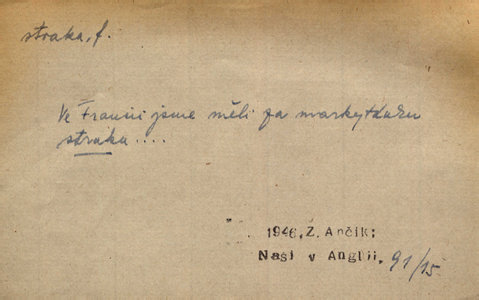 straka, f.
Ve Francii jsme měli za markytánku
straku ....
1946, Z. Ančík:
Naši v Anglii, 91/15